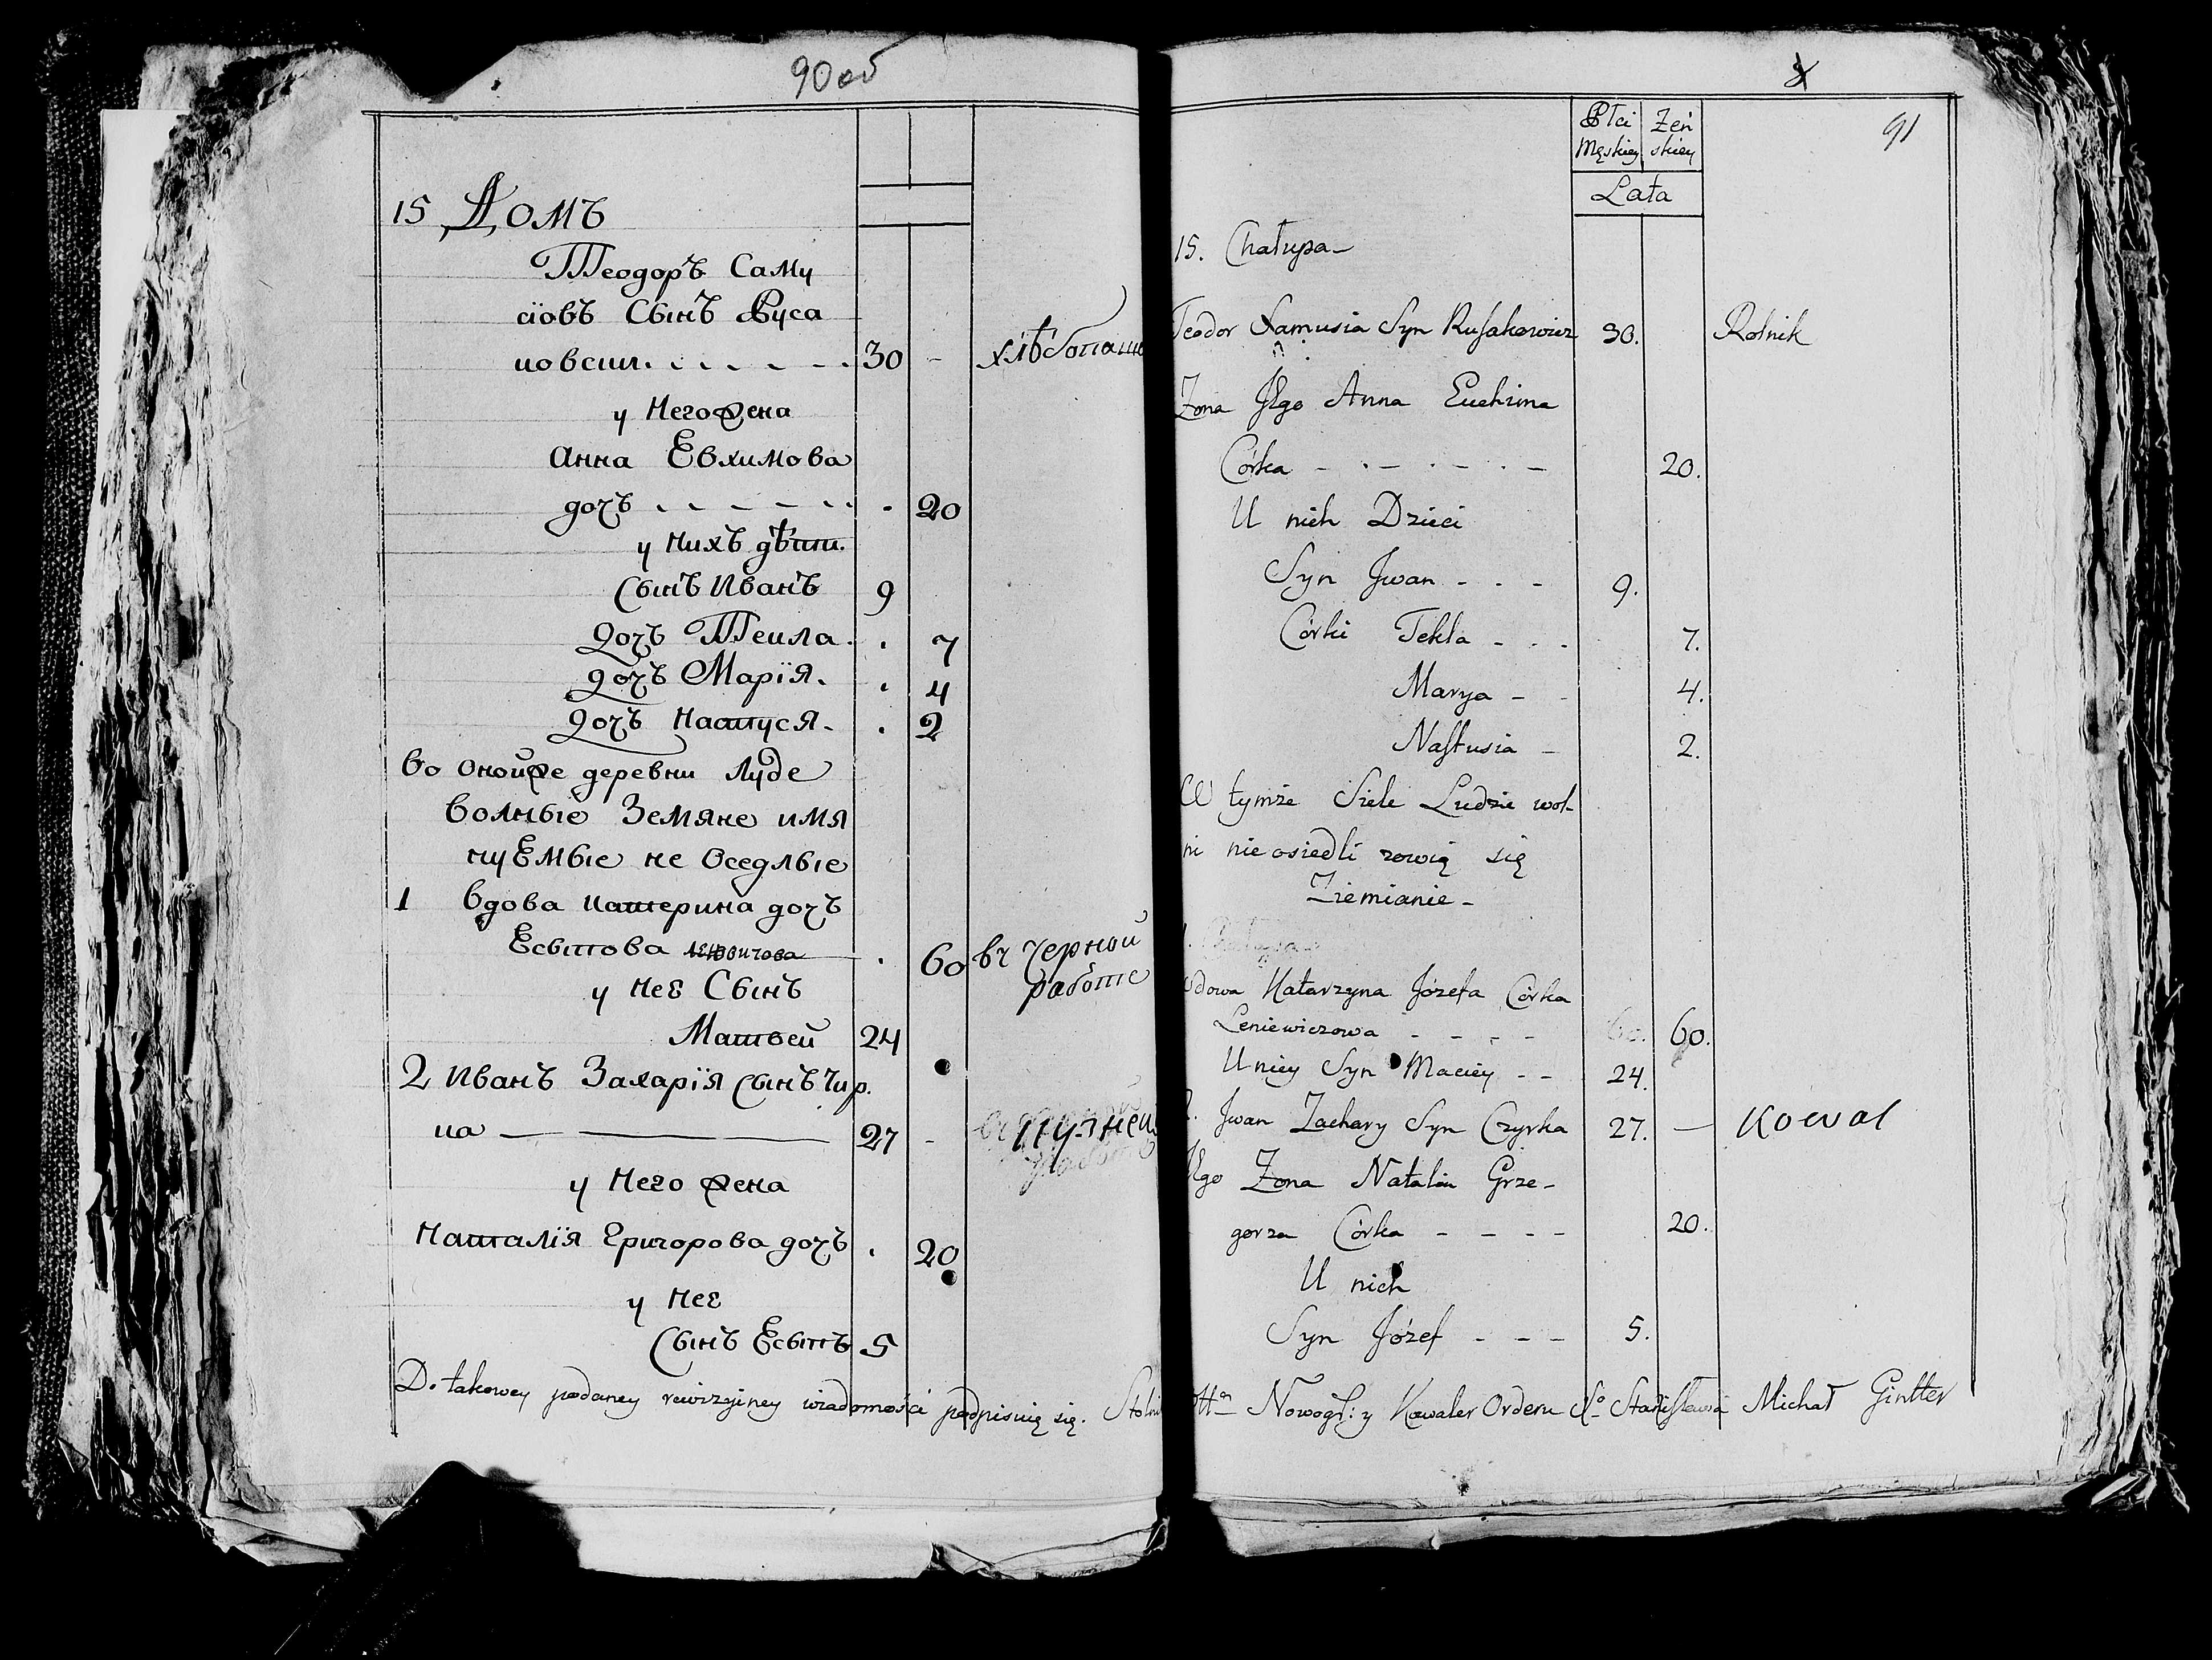 90 об
15 Домъ
Теодоръ Саму
сіовъ Сынъ Руса
ковски. - - - - - 30 - хлѣбопаше
у Него жена
Анна Евхимова
дочъ - - - - - . 20
у Нихъ дѣти.
Сынъ Иванъ 9
Дочъ Текла . . 7
Дочъ Марїя. . 4
Дочъ Настуся - . 2
Во Онойже деревни Люде
Волные Земяне имя
нуЕмые не Оседлые
1 Вдова Катерина дочъ
Есыпова Леновичова . 60 въ черной
работе
у НеЕ Сынъ
Матвей 24
2 Иванъ Захарїя Сынъ Чир.
ка — — — 27 - кузнец
у Него жена
Наталїя Григорова дочъ . 20
у НеЕ
Сынъ Есыпъ 5
Do takowey podaney rewizyiney wiadomości podpisuię się. Stolni
91
Płci Żeń
Męskiey skiey
Lata
15. Chałupa -
Teodor Samusia Syn Rusakowicz 30. Rolnik
Żona Jego Anna Euchima
Córka - . - . - . - 20.
U nich Dzieci
Syn Jwan - - - 9.
Córki Tekla - - - 7.
Marya - - 4.
Nastusia - 2.
W tymże Siele Ludzie wol-
ni nieosiedli zowią się
Ziemianie -
1. Chałupa -
Wdowa Katarzyna Józefa Córka
Leniewiczowa - - - - 60.
U niey Syn Maciey - - 24.
2. Jwan Zachary Syn Czyrka 27. — Koval
Jego Żona Natalia Grze-
gorza Córka - - - - 20.
U nich
Syn Józef - - - 5.
Nowogł: y Kawaler Orderu So Stanisława Michał Gintter